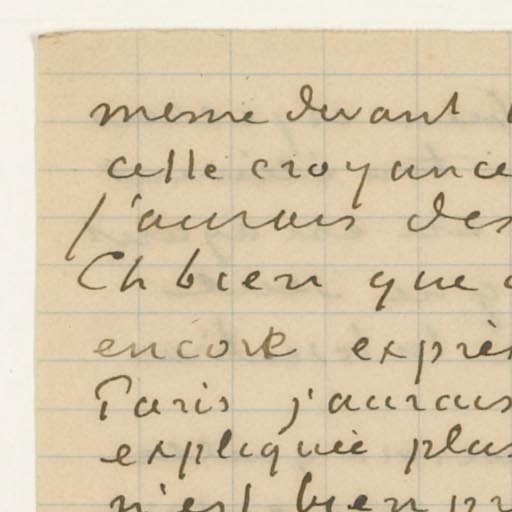 meme devant
cette croyance
j'aurais des
Eh bien que
encore exprès
Paris j'aurais
expliquée plus
n'est bien